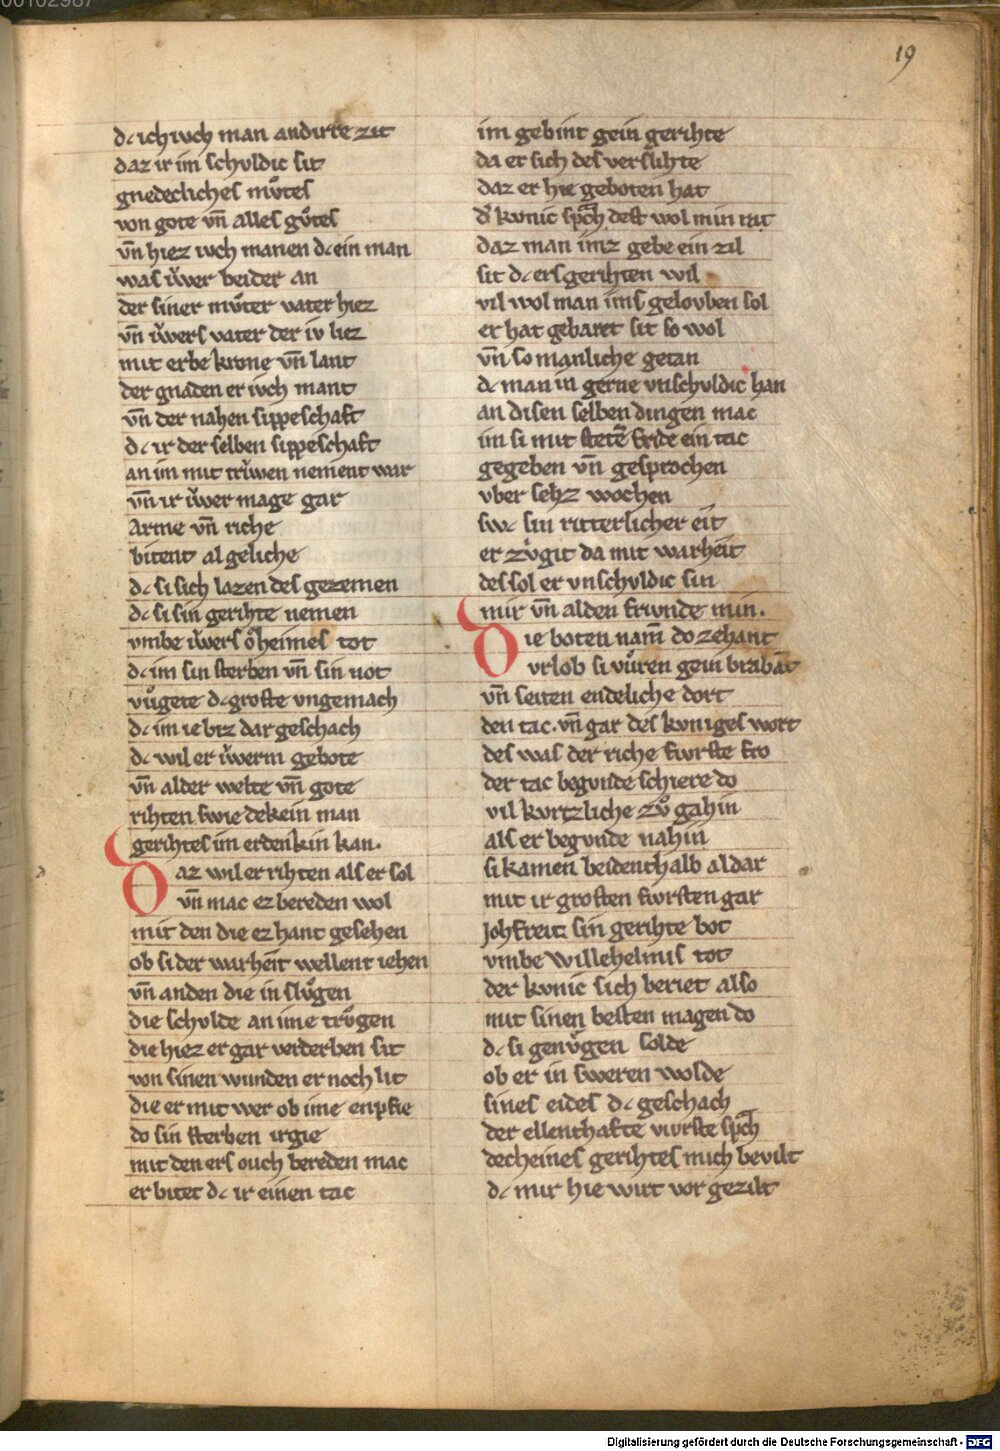 19
dc ich iuch man an dirre zit
daz ir im schvldic sit
gnedecliches mvͦtes
von gote vn̄ alles gvͦtes
vn̄ hiez iuch manen dc ein man
was iwer beider an
der siner mvͦter vater hiez
vn̄ iwers vater der iv liez
mit erbe krone vn̄ lant
der gnaden er iuch mant
vn̄ der nahen sippeschaft
dc ir der selben sippeschaft
an im mit triwen nement war
vn̄ ir iwer mage gar
Arme vn̄ riche
bitent al geliche
dc si sich lazen des gezemen
dc si sin gerihte nemen
vmbe iwers oͤheimes tot
dc im sin sterben vn̄ sin not
vuͤgete dc groste vngemach
dc im ie btz dar geschach
dc wil er iwerm gebote
vn̄ al der welte vn̄ gote
rihten swie dekein man
gerihtes im erdenkin kan.
Daz wil er rihten als er sol
vn̄ mac ez bereden wol
mit den die ez hant gesehen
ob si der warheit wellent iehen
vn̄ an den die in slvͦgen
die schvlde an ime trvͦgen
die hiez er gar verderben sit
von sinen wunden er noch lit
die er mit wer ob ime enpfie
do sin sterben irgie
mit den ers ouch bereden mac
er bitet dc ir einen tac
im gebint gein gerihte
da er sich des verslihte
daz er hie geboten hat
d' kvnic spͣch dest wol min rat
daz man imz gebe ein zil
sit dc ers gerihten wil
vil wol man ims gelovben sol
er hat gebaret sit so wol
vn̄ so manliche getan
dc man in gerne vnschvldic han
an disen selben dingen mac
im si mit stetē fride ein tac
gegeben vn̄ gesprochen
vber sehz wochen
swc sin ritterlicher eit
er zvͦgit da mit warheit
des sol er vnschvldic sin
mir vn̄ al den friwnde min.
Die boten nam̄ do zehant
vrlob si vuͦren gein brabāt
vn̄ seiten endeliche dort
den tac. vn̄ gar des kvniges wort
des was der riche fvrste fro
der tac begvnde schiere do
vil kvrtzliche zvͦ gahin
als er begvnde nahin
si kamen beidenthalb aldar
mit ir grosten fvrsten gar
Johfreit sin gerihte bot
vmbe Willehelmis tot
der kvnic sich beriet also
mit sinen besten magen do
dc si genvͤgen solde
ob er in sweren wolde
sines eides dc geschach
der ellenthafte vurste spͣch
decheines gerihtes mich bevilt
dc mir hie wirt vor gezilt
Digitalisierung gefördert durch die Deutsche Forschungsgemeinschaft - DFG